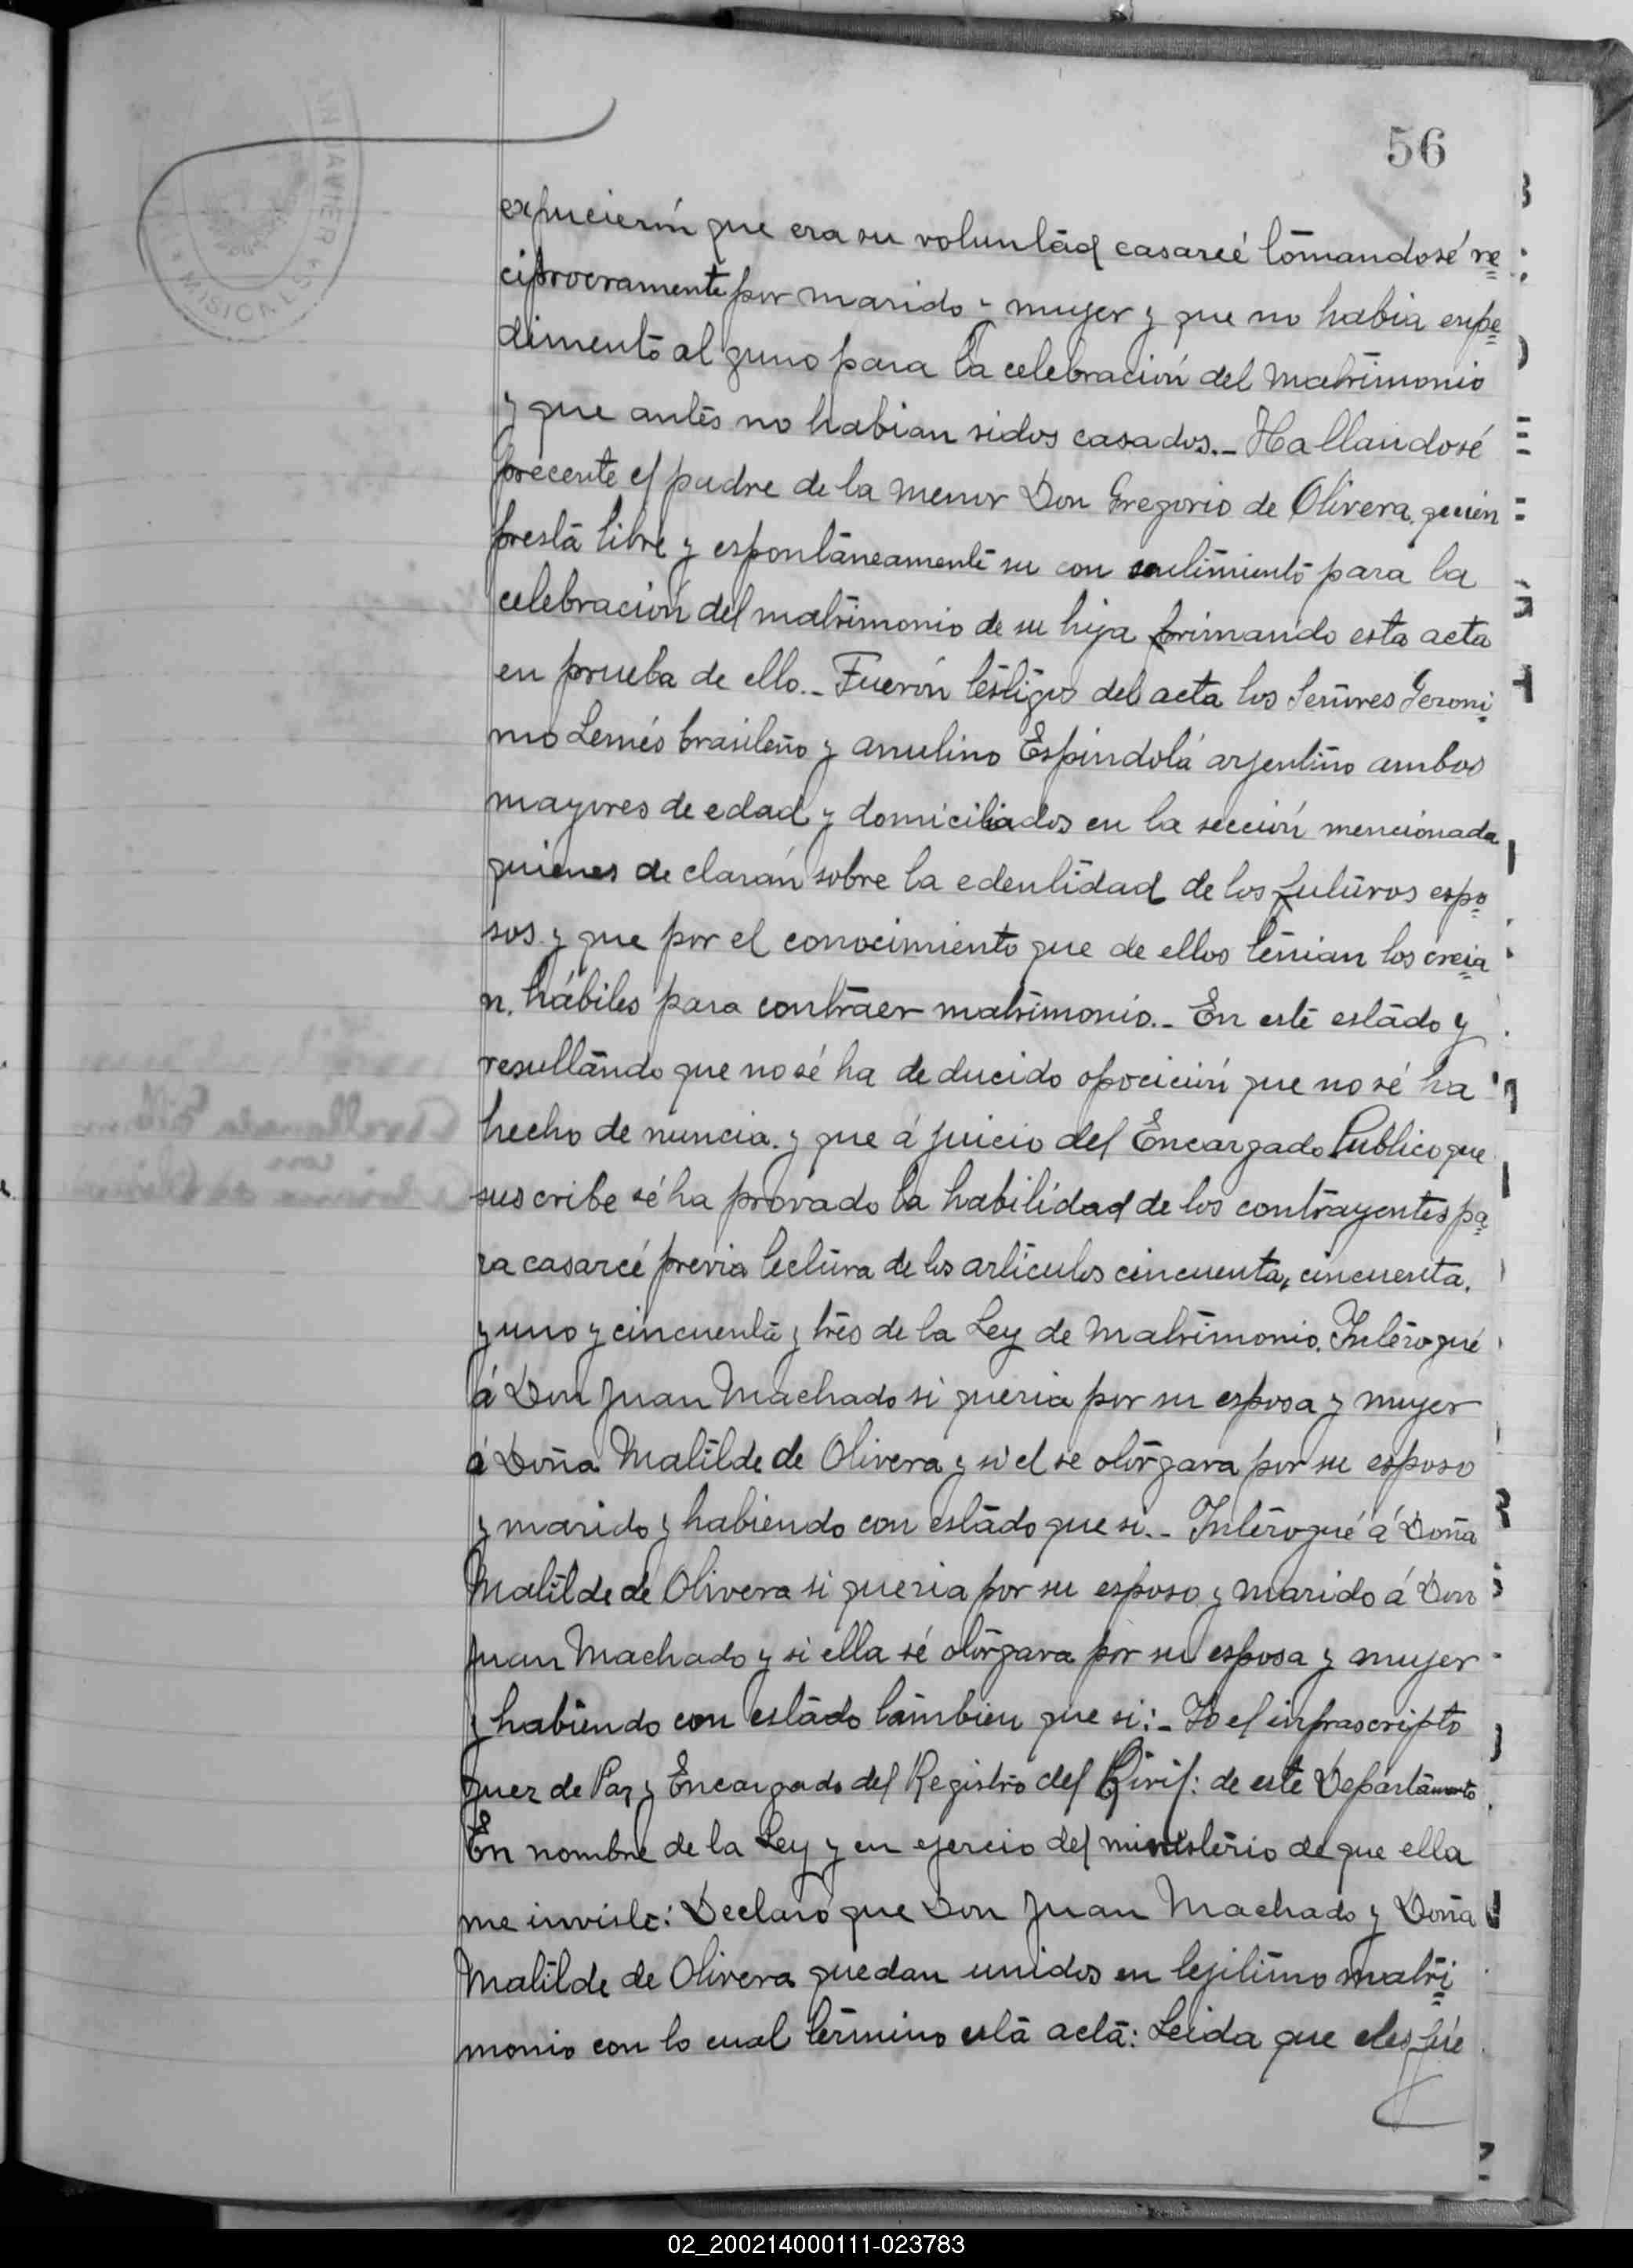 56
expucierón que era su voluntad casarcé tomandosé re=
ciprocramente por marido y mujer y que no habia enpe=
dimento al guno para la celebración del matrimonio
y que antes no habian sidos casados._ Hallandosé
precente el padre de la menor Don Gregorio de Olivera, quién
presta libre y espontaneamente su con sentimiento para la
celebración del matrimonio de su hija firmando esta acta
en prueba de ello._ Fuerón testigos del acta los Señores Geroni=
mo Lemés brasileño y anulino Espindolá argentino ambos
mayores de edad y domiciliados en la sección mencionada
quienes de clarán sobre la edentidad de los futuros espo=
sos y que por el conocimiento que de ellos tenian los creia=
n. hábiles para contraer matrimonio._ En este estado y
resultando que no sé ha de ducido opocición que no sé ha
hecho de nuncia. y que á juicio del Encargado Publico que
sus cribe sé ha provado la habilidad de los contrayentes pa=
ra casarcé previa lectura de los articulos cincuenta, cincuenta.
y uno y cincuenta y tres de la Ley de Matrimonio. Interogué
á Don Juan Machado si queria por su esposa y mujer
á Doña Matilde de Olivera y si el se otorgara por su esposo
y marido y habiendo con estado que si._ Interogué á Doña
Matilde de Olivera si queria por su esposo y marido á Don
Juan Machado y si ella sé otorgara por su esposa y mujer
y habiendo con estado tambien que si:_ Yo el infrascripto
Juez de Paz y Encargado del Registro del Civil: de este Departamento
En nombre de la Ley y en ejercio del ministerio de que ella
me inviste: Declaro que Don Juan Machado y Doña
Matilde de Olivera quedan unidos en lejitimo matri=
monio con lo cual termino esta acta: Leida que eles fué
MISIONES
02_200214000111-023783